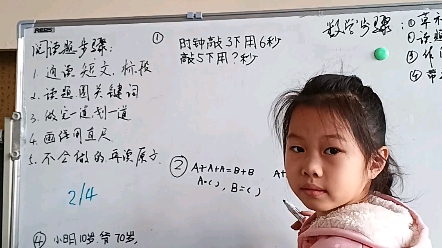 阅读题步骤:
1. 通读短文, 标段
2. 读题圈关键词
3. 做完一道划一道
4. 画线用直尺
5. 不会做的再读原文
2/4
① 时钟敲3下用6秒
敲5下用?秒
② A+A+A=B+B
A=( ), B=( )
④ 小明10岁 爷70岁,
数学步骤: ①
②读题
③
④